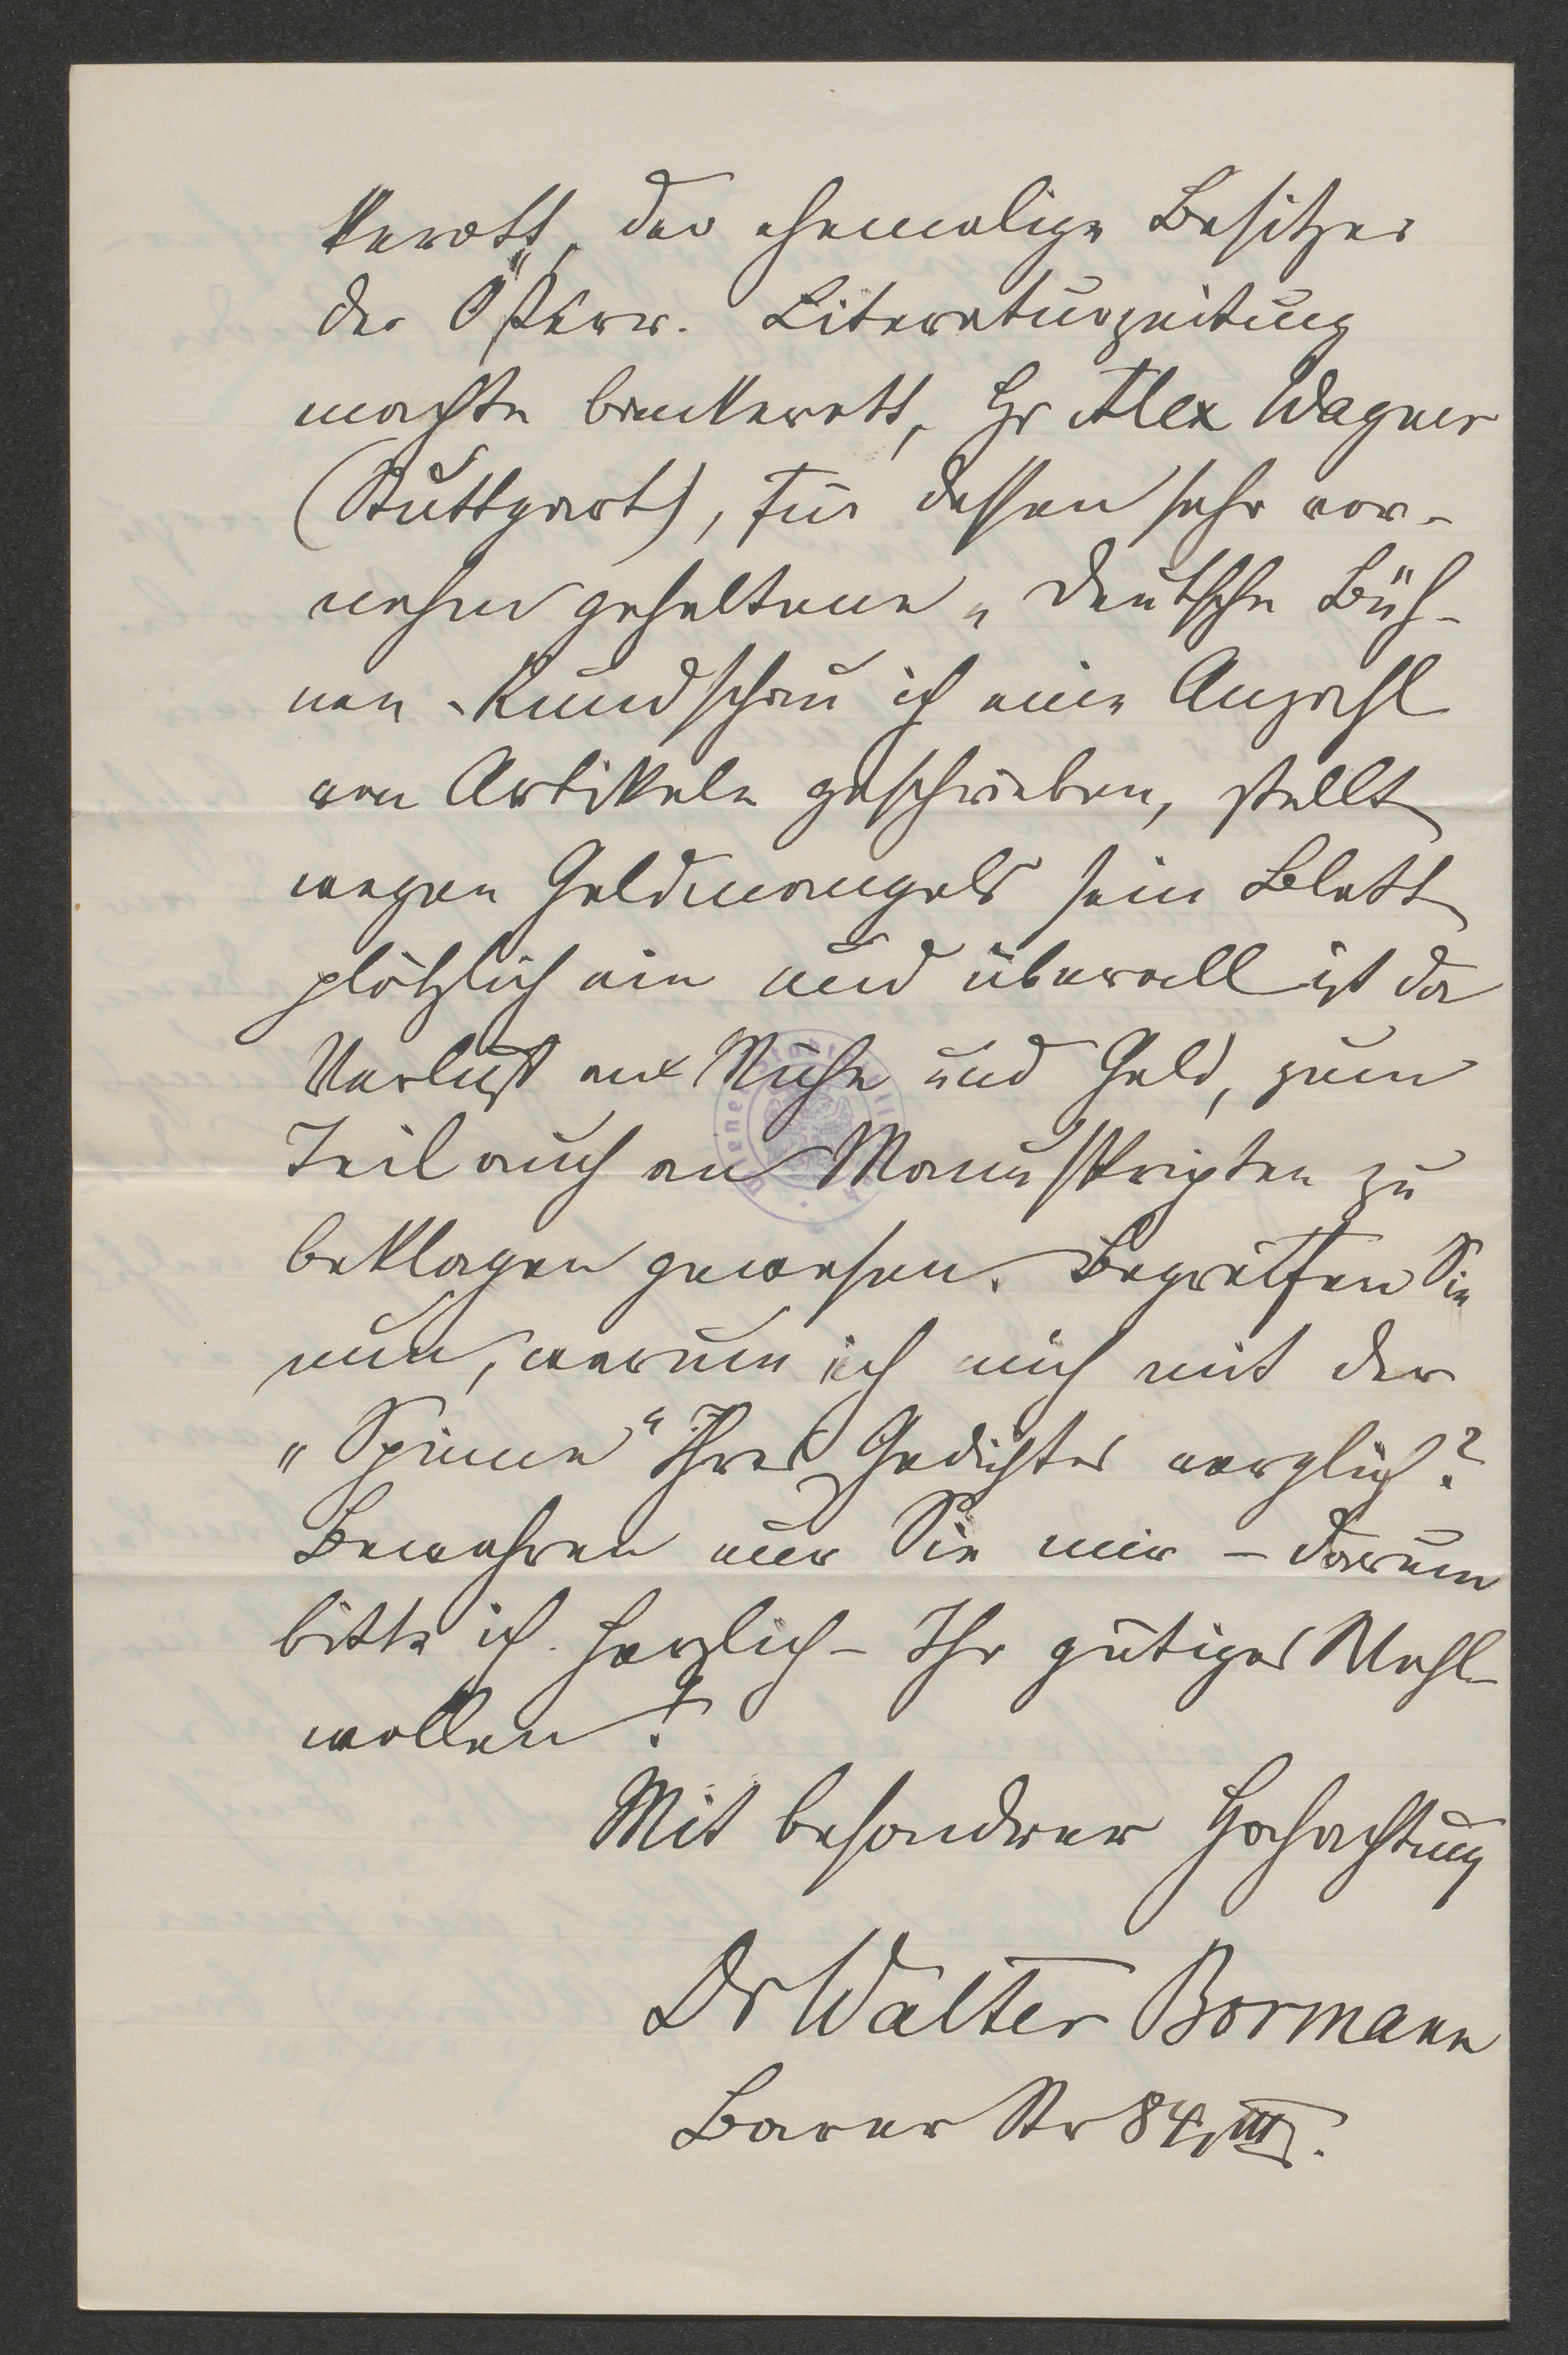 kerott, der ehemalige Besitzer
der Österr. Literaturzeitung
machte bankerott, Hr Alex Wagner
(Stuttgart), für dessen sehr vor-
nehm gehaltene „Deutsche Büh-
nen-Rundschau ich eine Anzahl
von Artikeln geschrieben, stellt
wegen Geldmangels sein Blatt
plötzlich ein und überall ist da
Verlust an Mühe und Geld, zum
Teil auch an Manuskripten zu
beklagen gewesen. Begreifen Sie
nun, warum ich mich mit der
„Spinne“ Ihres Gedichtes verglich?
Bewahren nur Sie mir – darum
bitte ich herzlich – Ihr gütiges Wohl-
wollen!
Mit besondrer Hochachtung
Dr Walter Bormann
Barer Str 84, III.